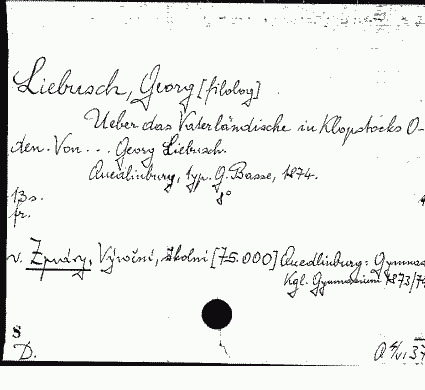 Liebusch, Georg [filolog]
Ueber das Vaterländische in Klopstocks O-
den. Von... Georg Liebusch.
Quedlinburg, typ. G. Basse, 1874.
13 s. 8°
fr.
v. Zprávy, Výroční, školní [75.000] Quedlinburg: Gymnas
Kgl. Gymnasium 1873/74
S
D.